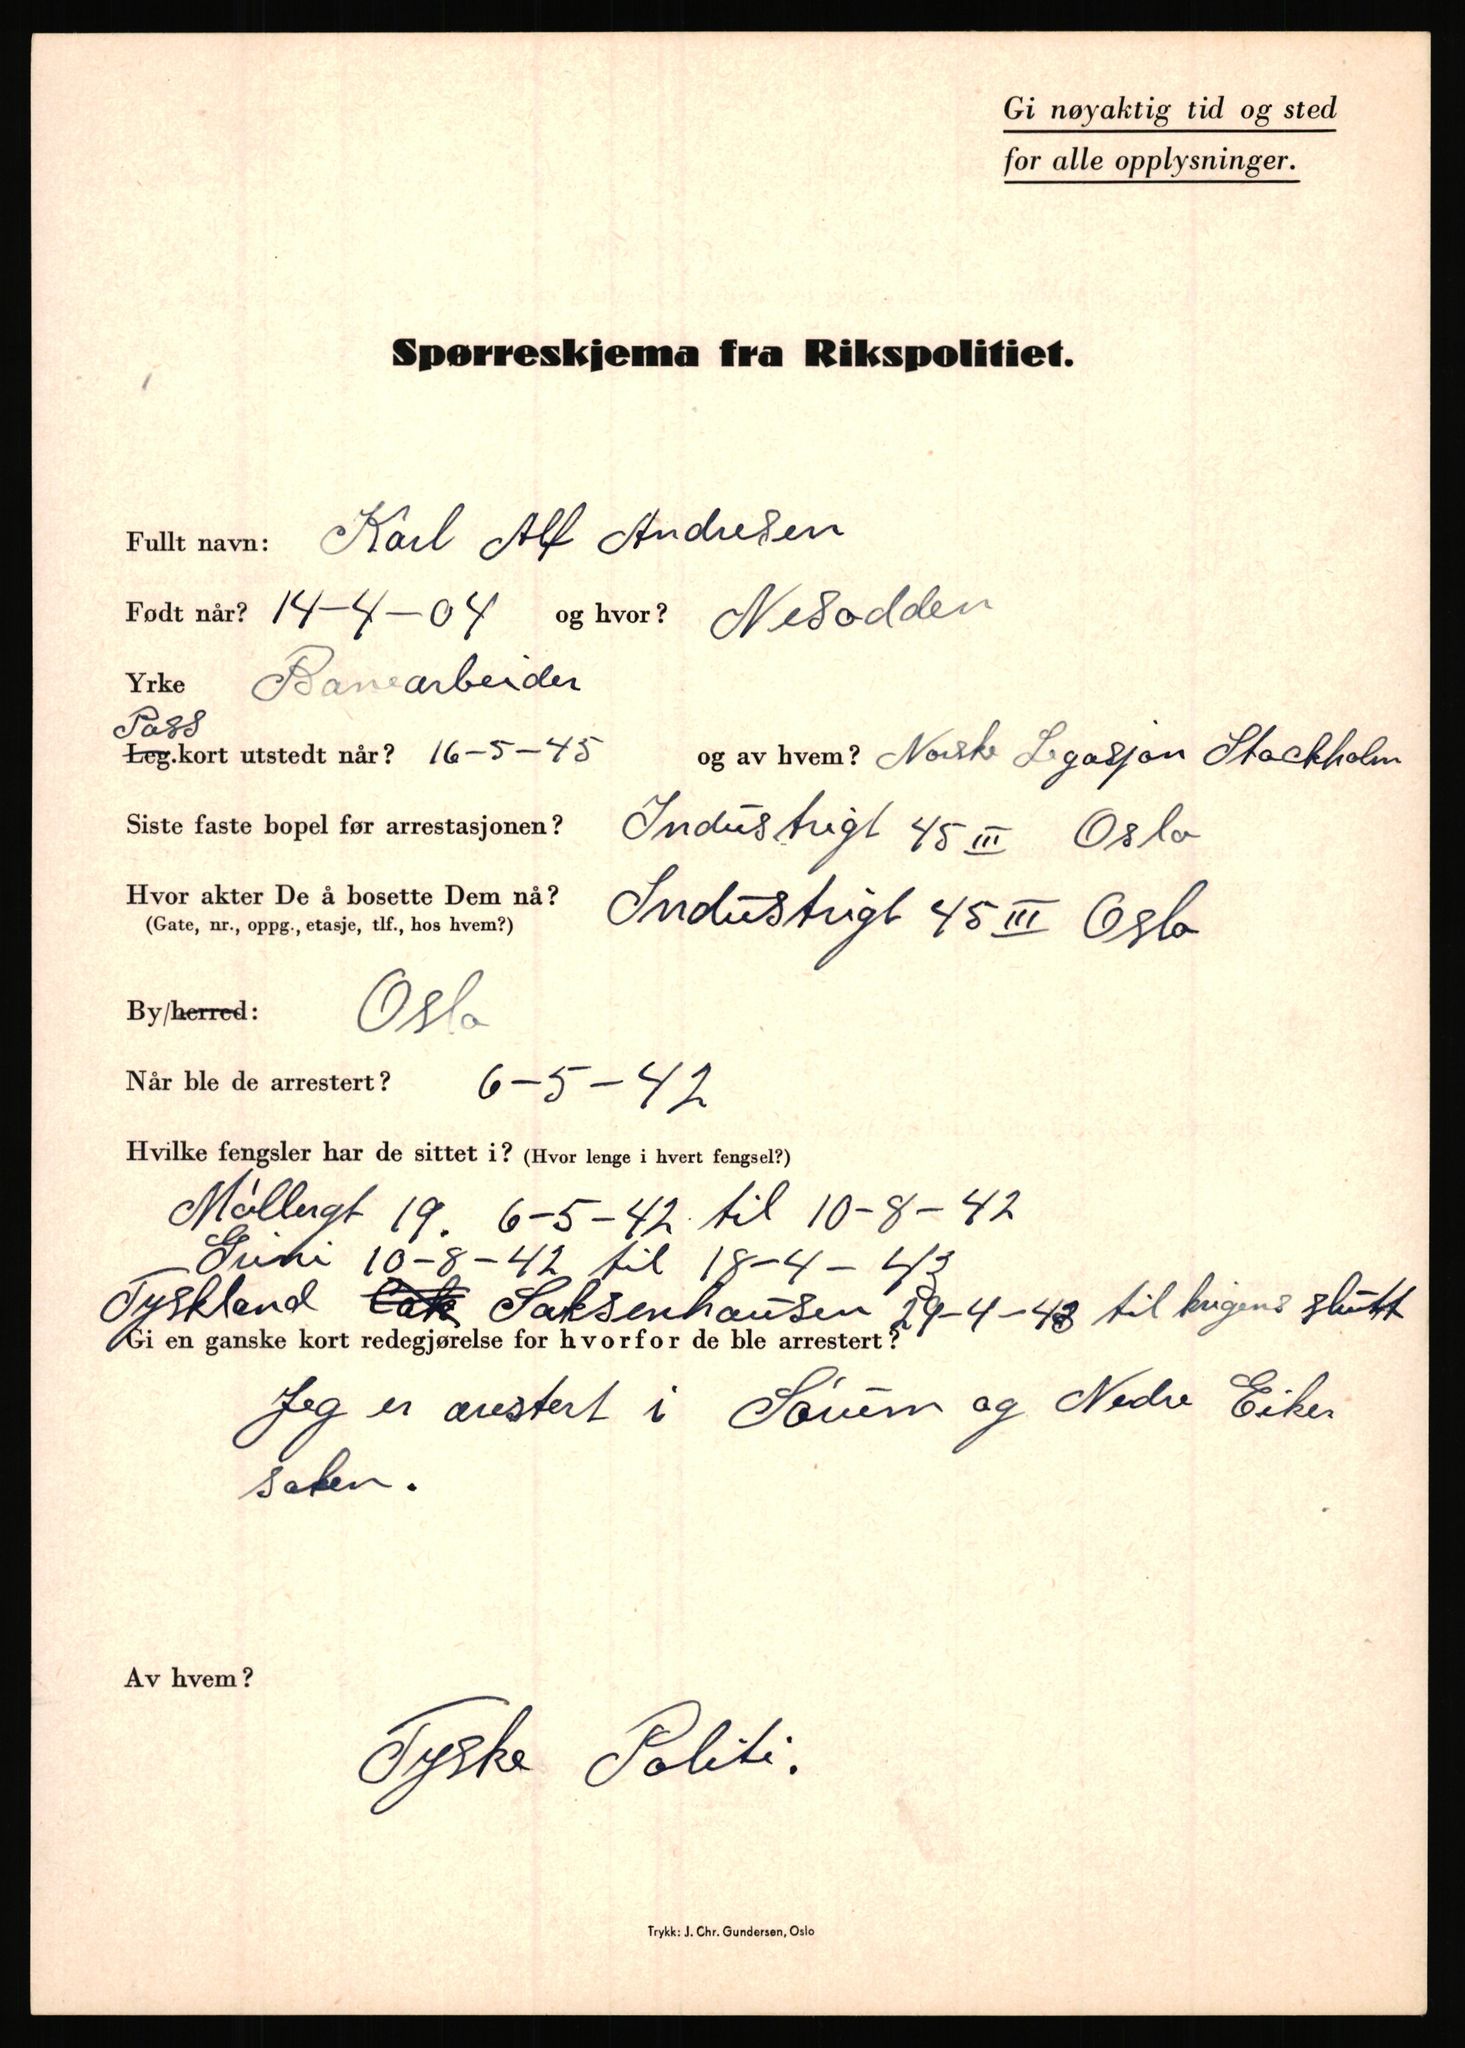 Gi nøyaktig tid og sted
for alle opplysninger.
Spørreskjema fra Rikspolitiet.
Fullt navn: Karl Alf Andresen
Født når? 14-4-04 og hvor? Nesodden
Yrke Banearbeider
Pass
Leg.kort utstedt når? 16-5-45 og av hvem? Norske Legasjon Stockholm
Siste faste bopel før arrestasjonen? Industrigt 45 III Oslo
Hvor akter De å bosette Dem nå? Industrigt 45 III Oslo
(Gate, nr., oppg., etasje, tlf., hos hvem?)
By/herred: Oslo
Når ble de arrestert? 6-5-42
Hvilke fengsler har de sittet i? (Hvor lenge i hvert fengsel?)
Møllergt 19. 6-5-42 til 10-8-42
Grini 10-8-42 til 18-4-43
Tyskland Saksenhausen 29-4-43 til krigens slutt
Gi en ganske kort redegjørelse for hvorfor de ble arrestert?
Jeg er arestert i Sørum og Nedre Eiker
saken.
Av hvem?
Tyske Politi.
Trykk: J. Chr. Gundersen, Oslo